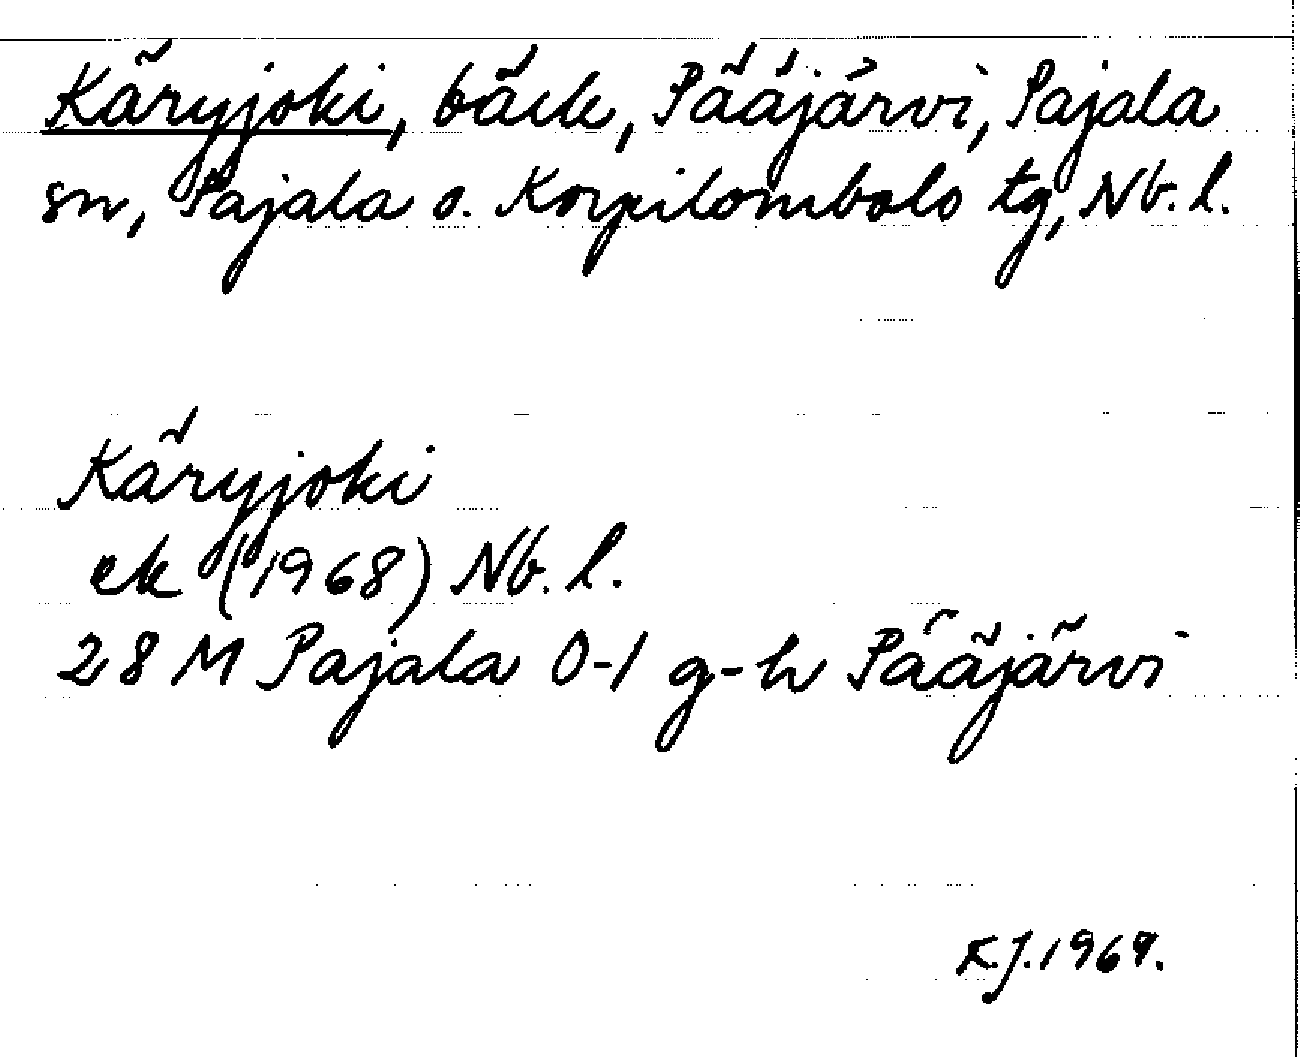 Käryjoki, bäck, Pääjärvi, Pajala
sn, Pajala o. Korpilombolo tg, Nb. l.
Käryjoki
ek (1968) Nb. l.
28 M Pajala 0-1 g-h Pääjärvi
K.J. 1969.